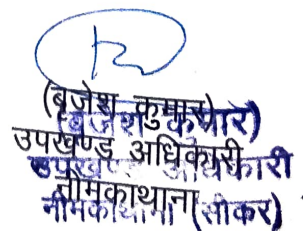 (बृजेश कुमार)
(बृजेश कुमार)
उपखण्ड अधिकारी
उपखण्ड अधिकारी
नीमकाथाना
नीमकाथाना (सीकर)